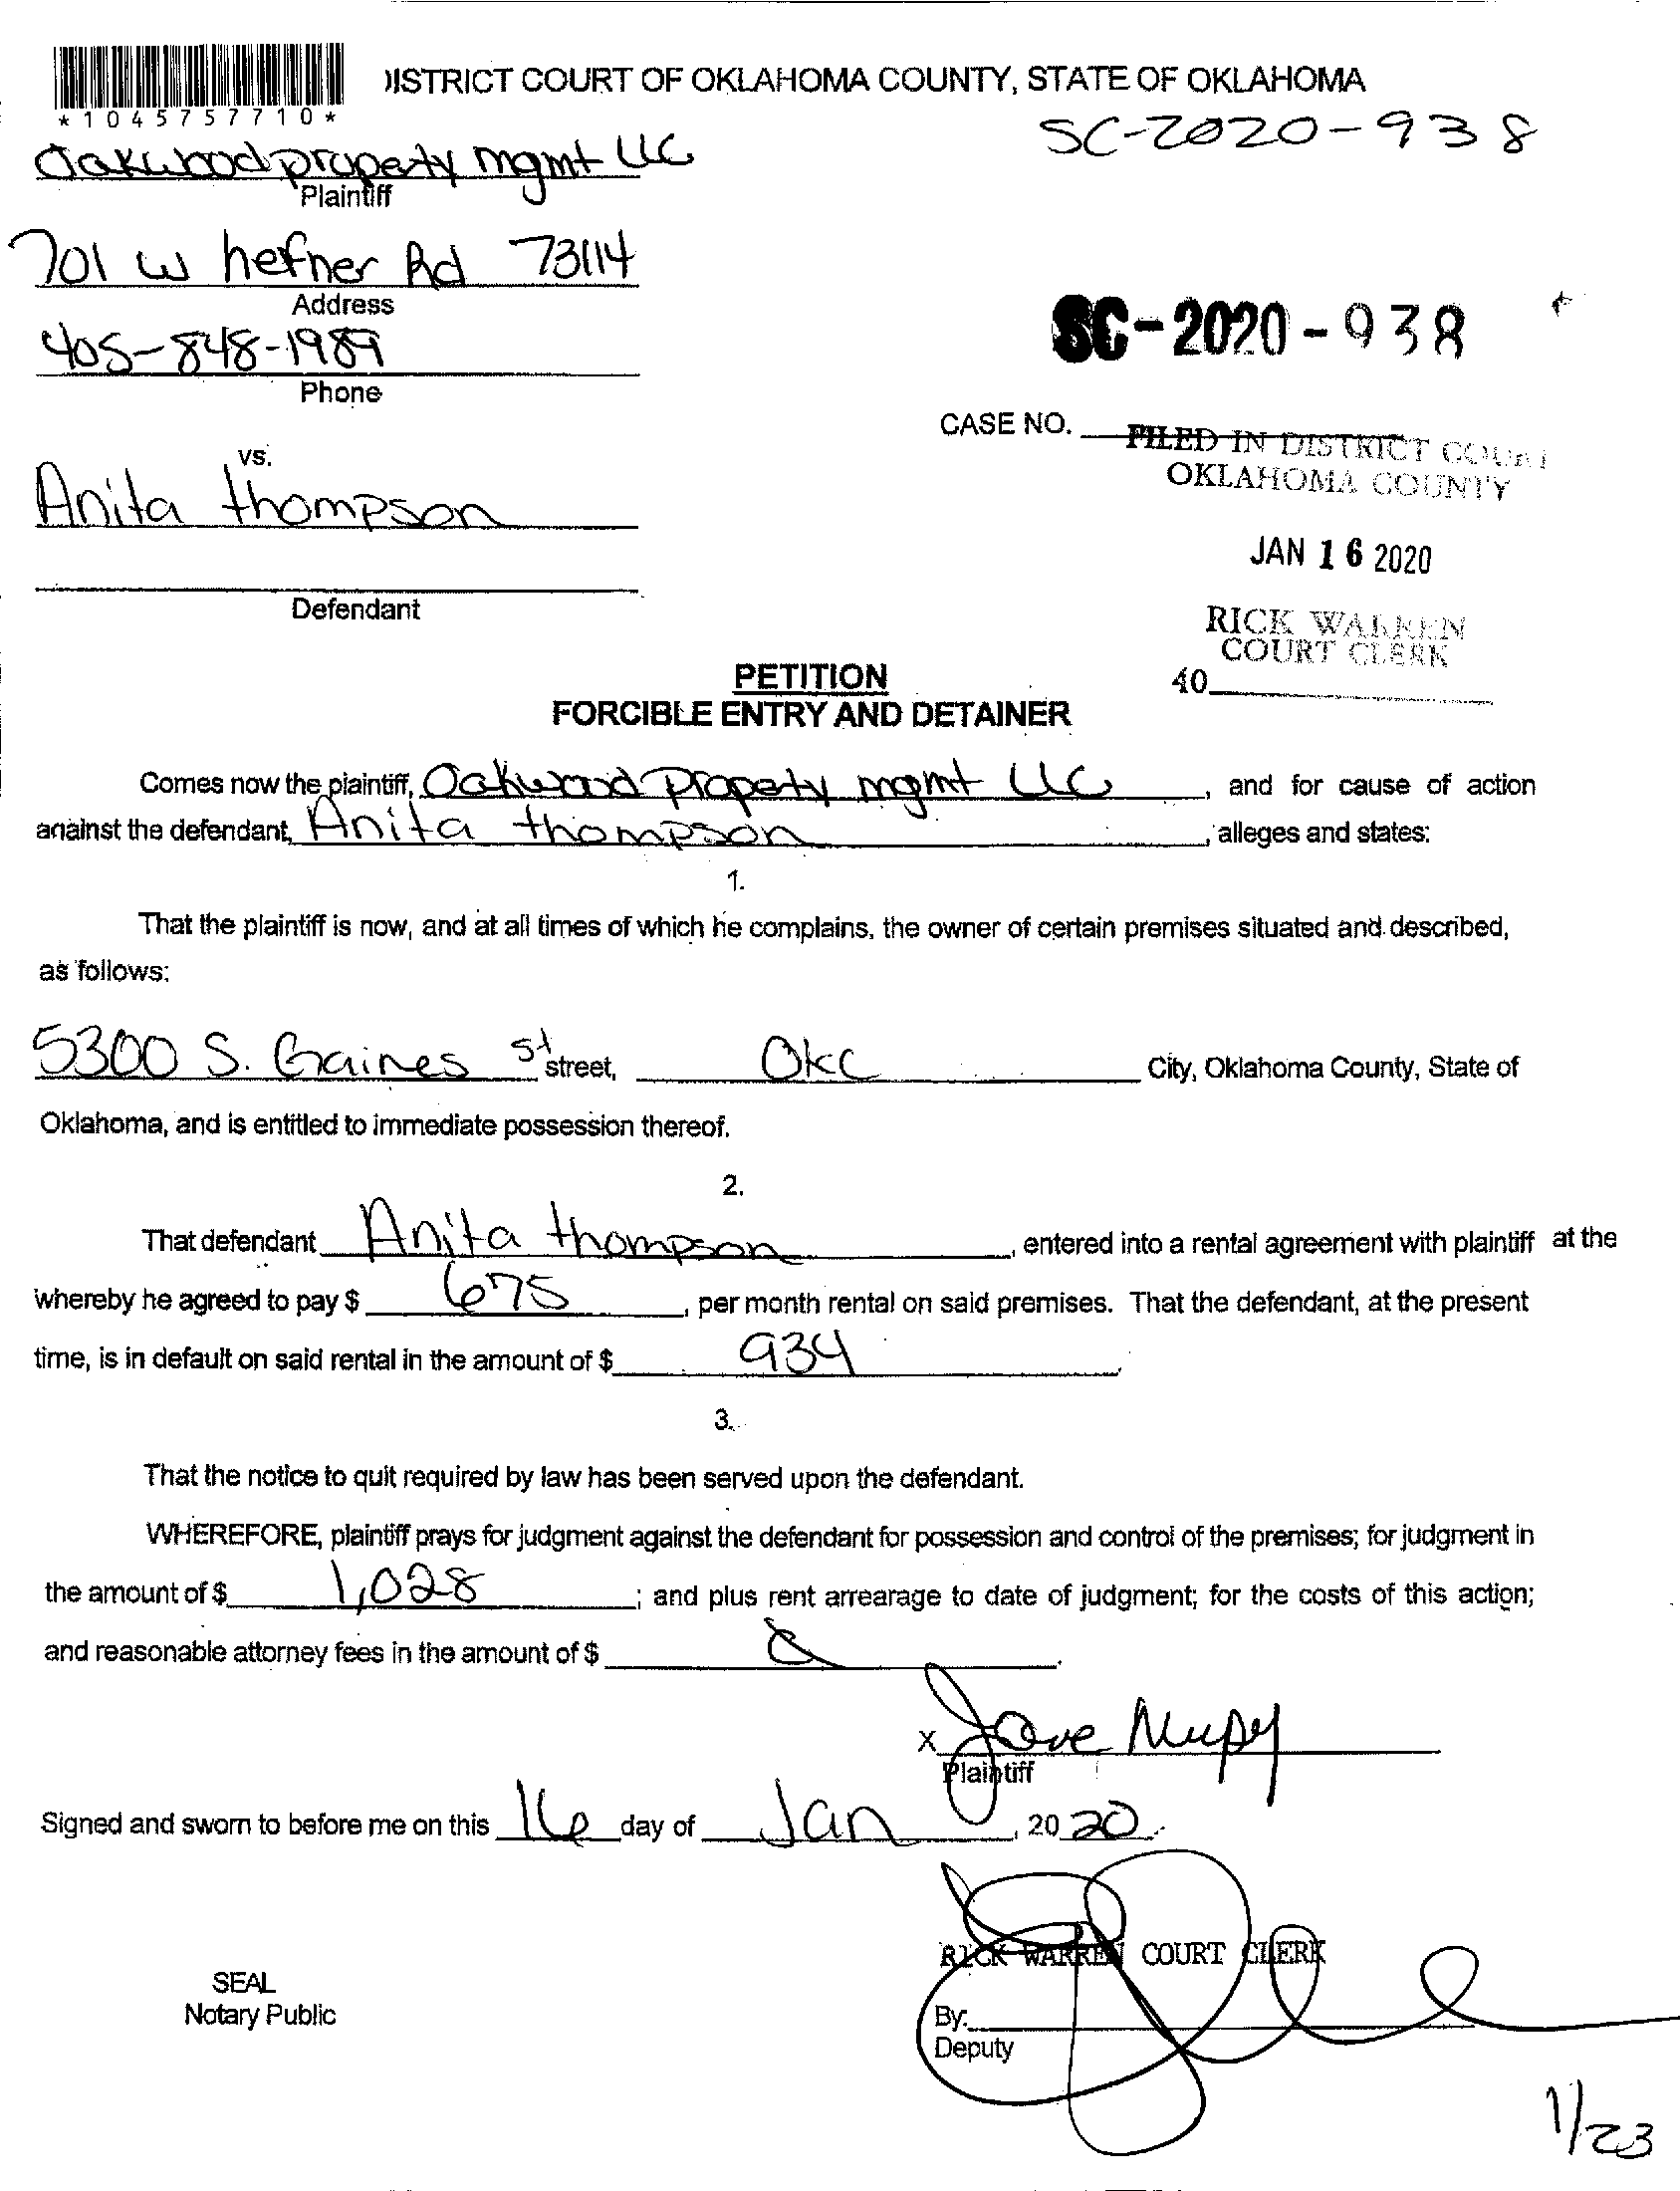 DISTRICT COURT OF OKLAHOMA COUNTY, STATE OF OKLAHOMA
*1045757710*
SC-2020-938
Oakwood property mgmt LLC
Plaintiff
701 W hefner Rd 73114
Address
SC-2020-938
405-848-1989
Phone
CASE NO.
FILED IN DISTRICT COURT
OKLAHOMA COUNTY
vs.
Anita thompson
JAN 16 2020
Defendant
RICK WARREN
COURT CLERK
40
PETITION
FORCIBLE ENTRY AND DETAINER
Comes now the plaintiff, Oakwood Property mgmt LLC, and for cause of action
against the defendant, Anita thompson, alleges and states:
1.
That the plaintiff is now, and at all times of which he complains, the owner of certain premises situated and described,
as follows:
5300 S. Gaines st street, OKC City, Oklahoma County, State of
Oklahoma, and is entitled to immediate possession thereof.
2.
That defendant Anita thompson, entered into a rental agreement with plaintiff at the
whereby he agreed to pay $ 675, per month rental on said premises. That the defendant, at the present
time, is in default on said rental in the amount of $ 934.
3.
That the notice to quit required by law has been served upon the defendant.
WHEREFORE, plaintiff prays for judgment against the defendant for possession and control of the premises; for judgment in
the amount of $ 1,028; and plus rent arrearage to date of judgment; for the costs of this action;
and reasonable attorney fees in the amount of $
X
Plaintiff
Signed and sworn to before me on this 16 day of Jan, 2020.
RICK WARREN COURT CLERK
SEAL
Notary Public
By:
Deputy
1/23